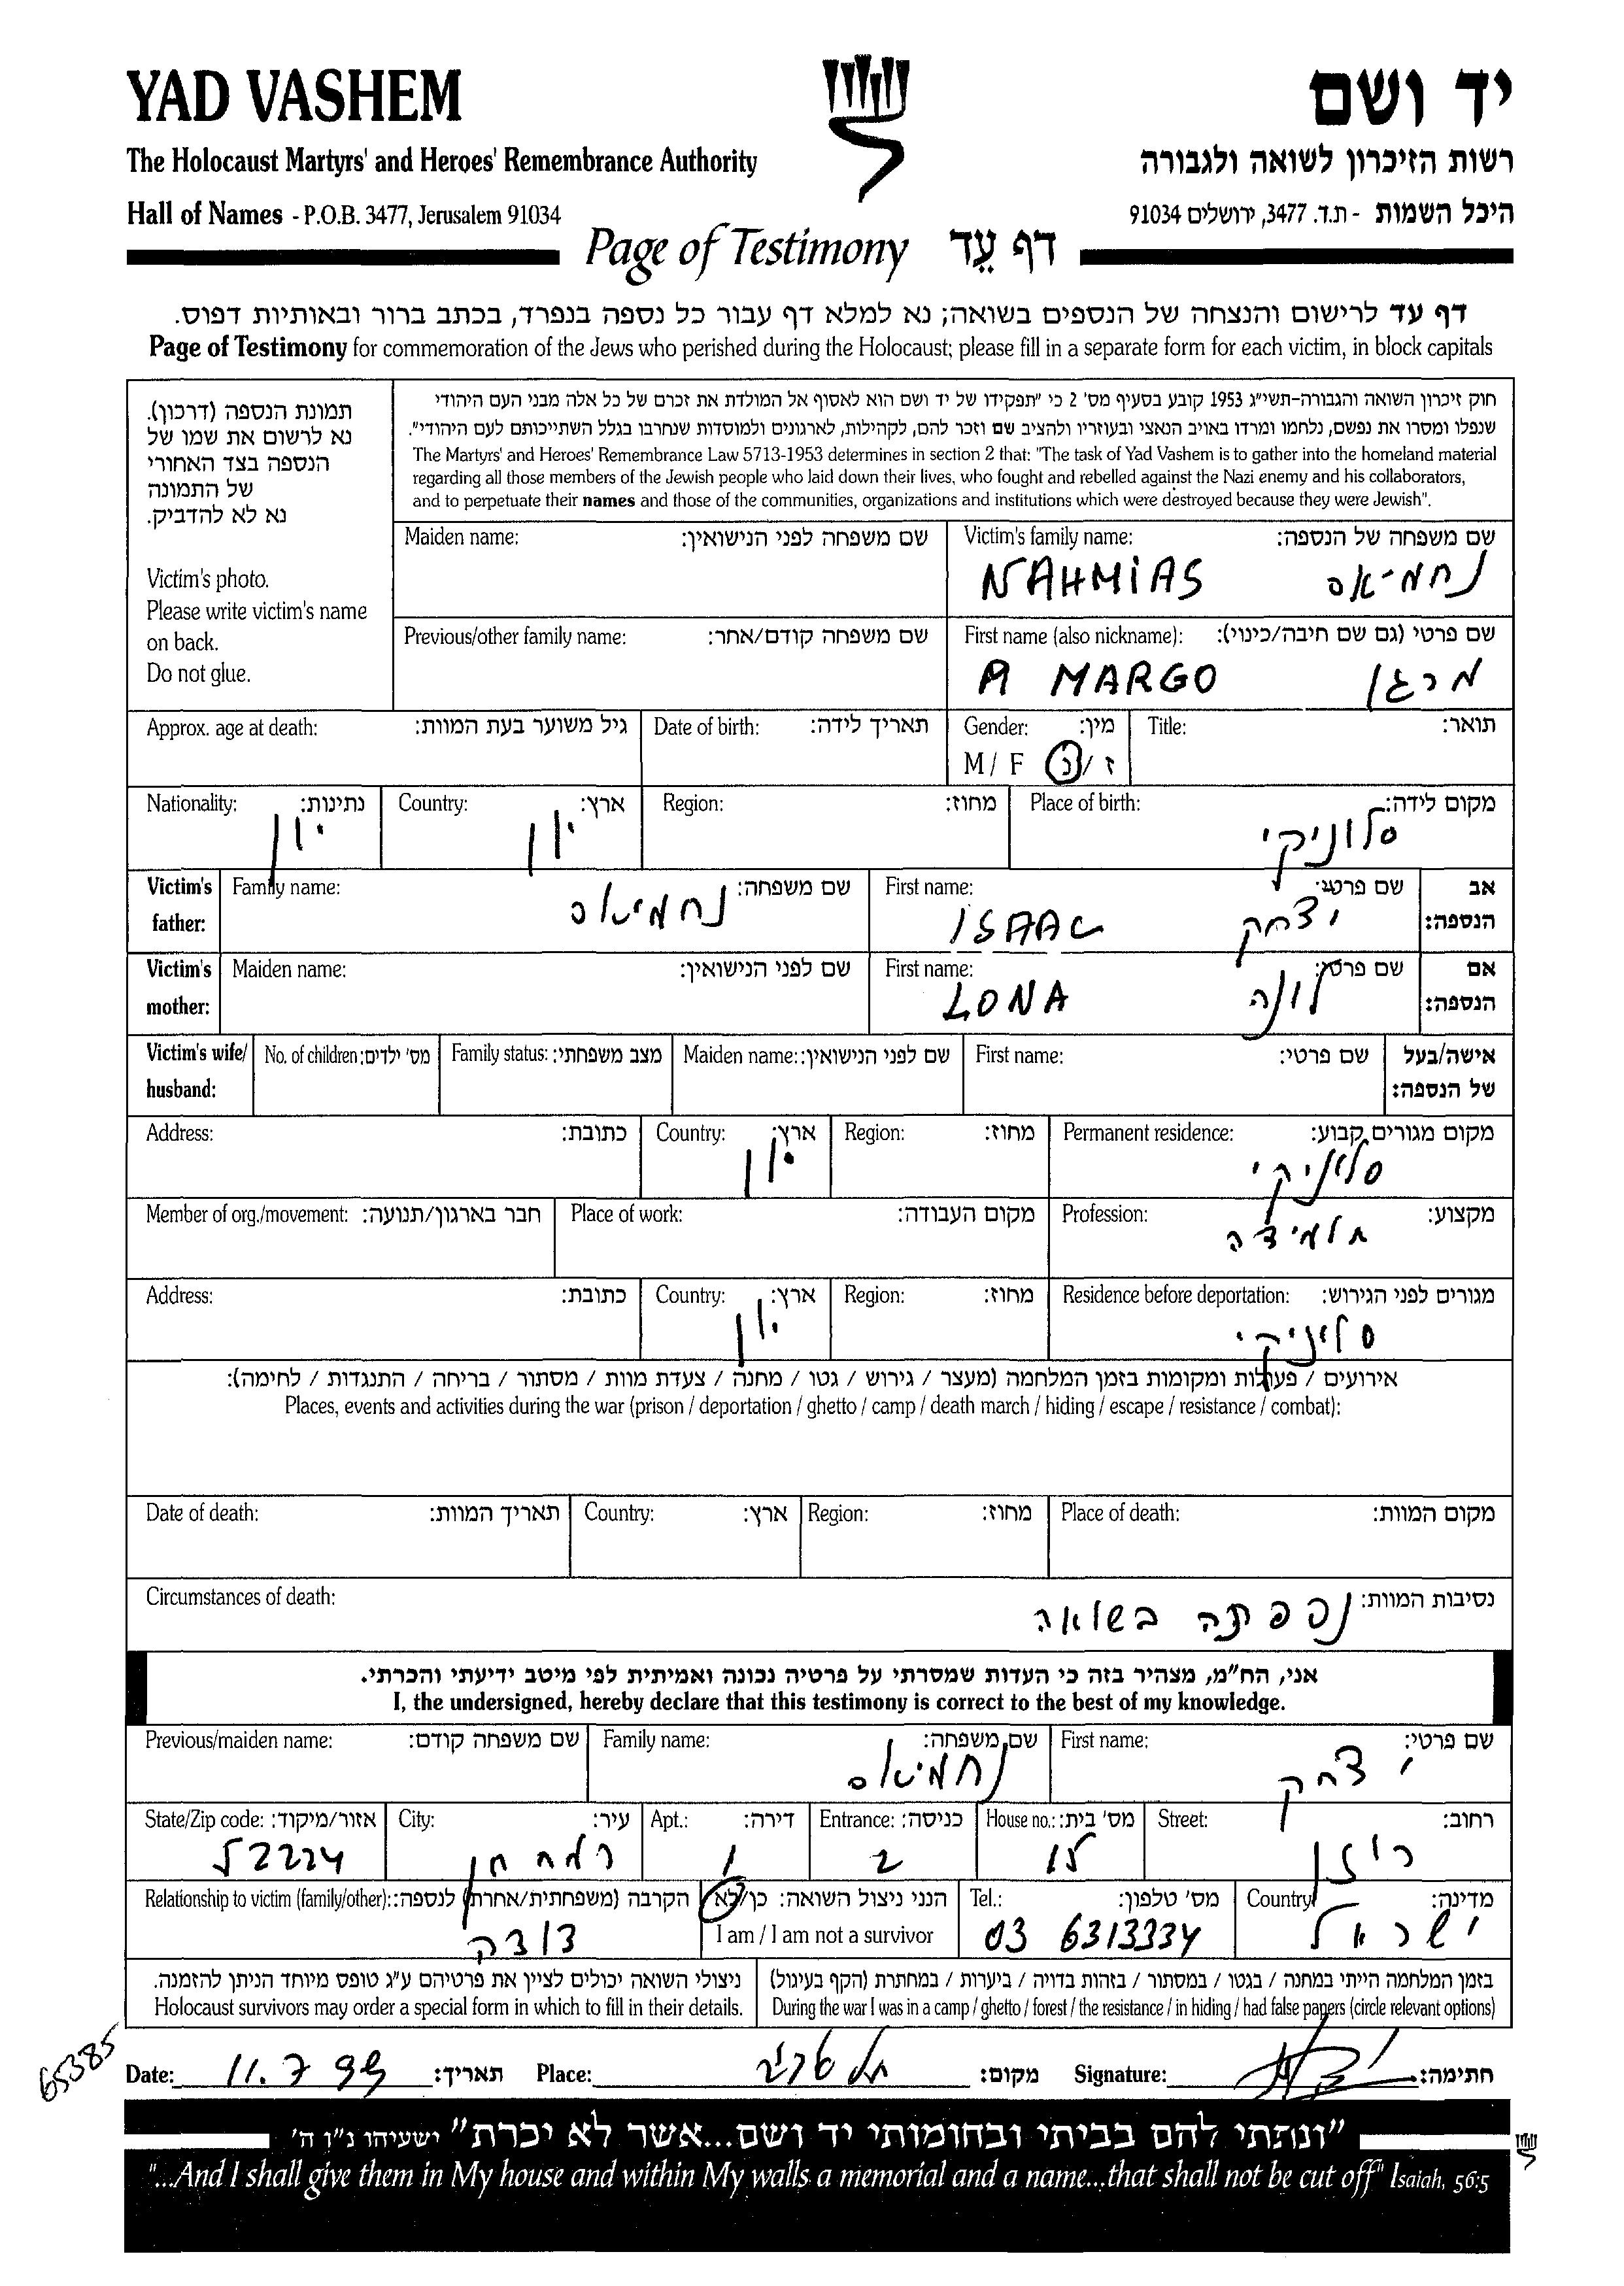 YAD VASHEM
יד ושם
The Holocaust Martyrs' and Heroes' Remembrance Authority
רשות הזיכרון לשואה ולגבורה
Hall of Names - P.O.B. 3477, Jerusalem 91034
היכל השמות - ת.ד. 3477, ירושלים 91034
Page of Testimony דף עֵד
דף עד לרישום והנצחה של הנספים בשואה; נא למלא דף עבור כל נספה בנפרד, בכתב ברור ובאותיות דפוס.
Page of Testimony for commemoration of the Jews who perished during the Holocaust; please fill in a separate form for each victim, in block capitals
תמונת הנספה (דרכון).
נא לרשום את שמו של
הנספה בצד האחורי
של התמונה
נא לא להדביק.
Victim's photo.
Please write victim's name
on back.
Do not glue.
חוק זיכרון השואה והגבורה-תשי"ג 1953 קובע בסעיף מס' 2 כי "תפקידו של יד ושם הוא לאסוף אל המולדת את זכרם של כל אלה מבני העם היהודי
שנפלו ומסרו את נפשם, נלחמו ומרדו באויב הנאצי ובעוזריו ולהציב שם וזכר להם, לקהילות, לארגונים ולמוסדות שנחרבו בגלל השתייכותם לעם היהודי".
The Martyrs' and Heroes' Remembrance Law 5713-1953 determines in section 2 that: "The task of Yad Vashem is to gather into the homeland material
regarding all those members of the Jewish people who laid down their lives, who fought and rebelled against the Nazi enemy and his collaborators,
and to perpetuate their names and those of the communities, organizations and institutions which were destroyed because they were Jewish".
Maiden name: שם משפחה לפני הנישואין:
Victim's family name: שם משפחה של הנספה:
NAHMIAS נחמיאס
Previous/other family name: שם משפחה קודם/אחר:
First name (also nickname): שם פרטי (גם שם חיבה/כינוי):
MARGO מרגו
Approx. age at death: גיל משוער בעת המוות:
Date of birth: תאריך לידה:
Gender: מין:
M / F ז / נ
Title: תואר:
Nationality: נתינות:
יוון
Country: ארץ:
יוון
Region: מחוז:
Place of birth: מקום לידה:
סלוניקי
Victim's father: אב הנספה:
Family name: שם משפחה:
נחמיאס
First name: שם פרטי:
ISAAC יצחק
Victim's mother: אם הנספה:
Maiden name: שם לפני הנישואין:
First name: שם פרטי:
LONA לונה
Victim's wife/ husband: אישה/בעל של הנספה:
No. of children: מס' ילדים:
Family status: מצב משפחתי:
Maiden name: שם לפני הנישואין:
First name: שם פרטי:
Address: כתובת:
Country: ארץ:
יוון
Region: מחוז:
Permanent residence: מקום מגורים קבוע:
סלוניקי
Member of org./movement: חבר בארגון/תנועה:
Place of work: מקום העבודה:
Profession: מקצוע:
תלמידה
Address: כתובת:
Country: ארץ:
יוון
Region: מחוז:
Residence before deportation: מגורים לפני הגירוש:
סלוניקי
אירועים / פעולות ומקומות בזמן המלחמה (מעצר / גירוש / גטו / מחנה / צעדת מוות / מסתור / בריחה / התנגדות / לחימה):
Places, events and activities during the war (prison / deportation / ghetto / camp / death march / hiding / escape / resistance / combat):
Date of death: תאריך המוות:
Country: ארץ:
Region: מחוז:
Place of death: מקום המוות:
Circumstances of death: נסיבות המוות:
נספתה בשואה
אני, הח"מ, מצהיר בזה כי העדות שמסרתי על פרטיה נכונה ואמיתית לפי מיטב ידיעתי והכרתי.
I, the undersigned, hereby declare that this testimony is correct to the best of my knowledge.
Previous/maiden name: שם משפחה קודם:
Family name: שם משפחה:
נחמיאס
First name: שם פרטי:
יצחק
State/Zip code: אזור/מיקוד:
52224
City: עיר:
רמת גן
Apt.: דירה:
1
Entrance: כניסה:
2
House no.: מס' בית:
15
Street: רחוב:
Relationship to victim (family/other): הקרבה (משפחתית/אחרת) לנספה:
דודה
הנני ניצול השואה: כן/לא
I am / I am not a survivor
Tel.: מס' טלפון:
03 6313334
Country: מדינה:
ישראל
ניצולי השואה יכולים לציין את פרטיהם ע"ג טופס מיוחד הניתן להזמנה.
Holocaust survivors may order a special form in which to fill in their details.
בזמן המלחמה הייתי במחנה / בגטו / במסתור / בזהות בדויה / ביערות / במחתרת (הקף בעיגול)
During the war I was in a camp / ghetto / forest / the resistance / in hiding / had false papers (circle relevant options)
65385
Date: 11.7.99 תאריך:
Place: תל אביב מקום:
Signature: חתימה:
"ונתתי להם בביתי ובחומותי יד ושם...אשר לא יכרת" ישעיהו נ"ו ה'
"...And I shall give them in My house and within My walls a memorial and a name...that shall not be cut off" Isaiah, 56:5